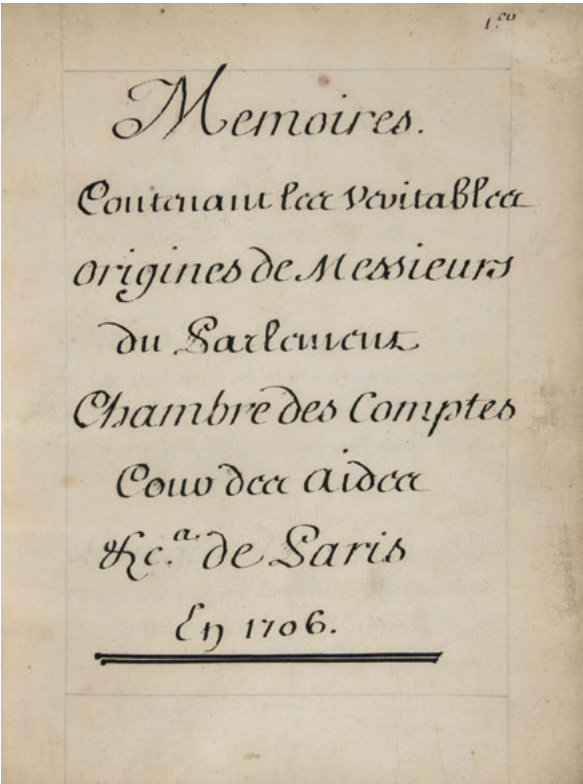 1.^co
Memoires.
Contenant les veritables
origines de Messieurs
du Parlement
Chambre des Comptes
Cour des aides
&c.^a de Paris
En 1706.